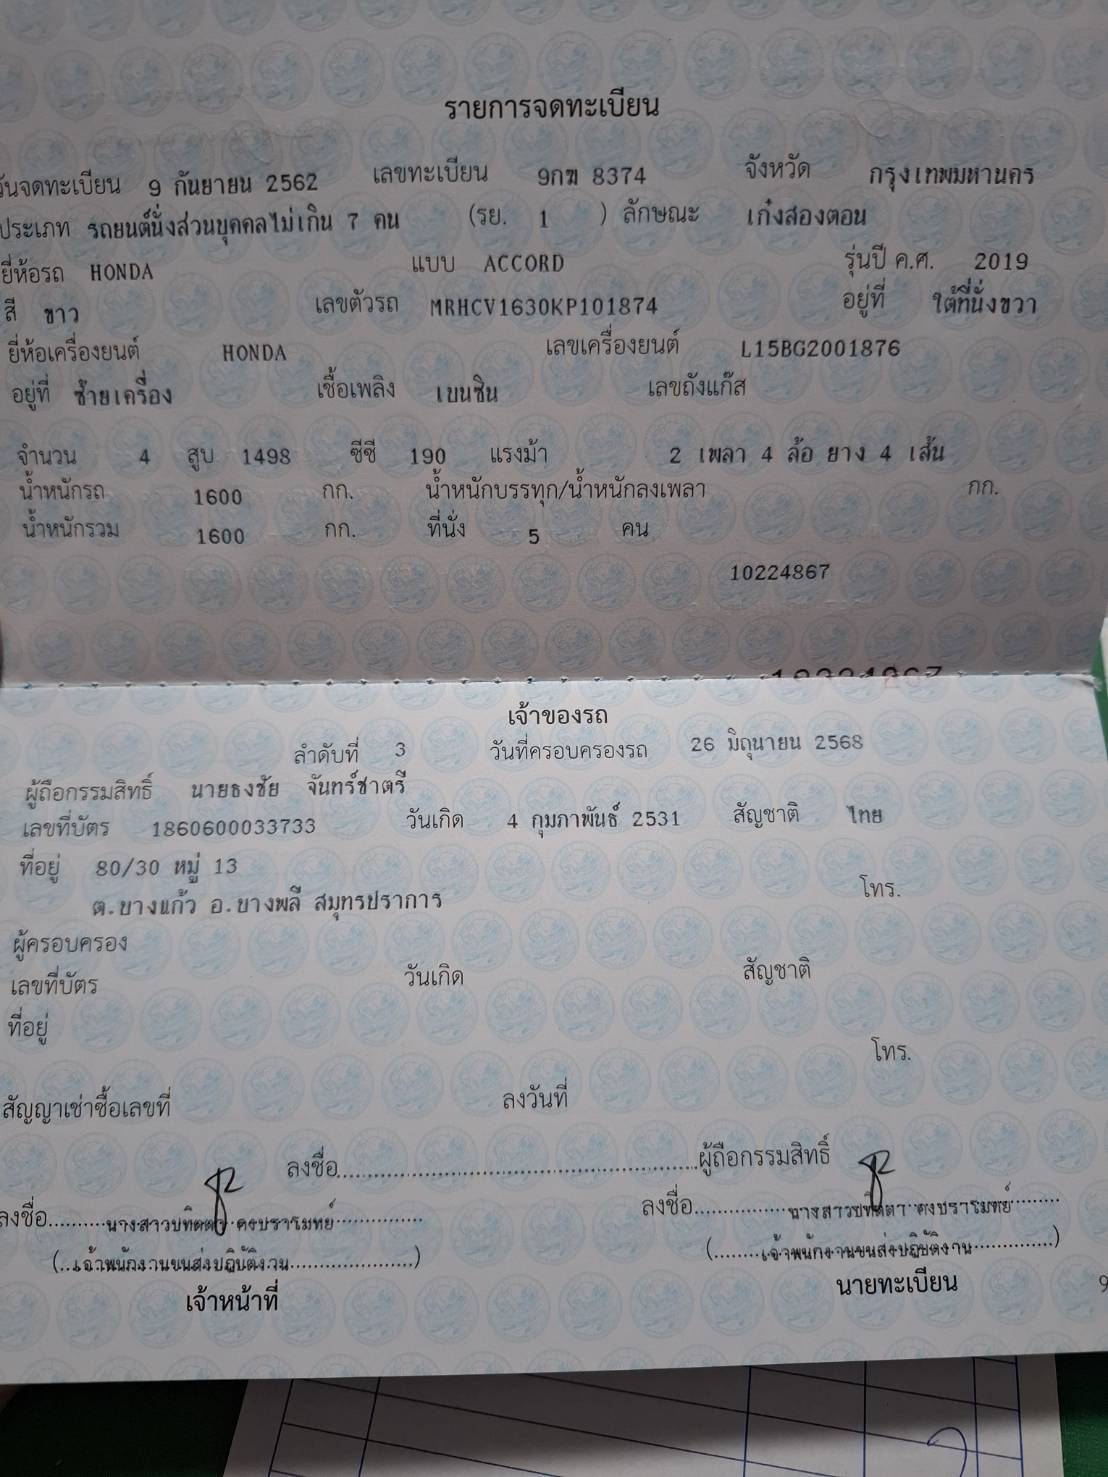 รายการจดทะเบียน
วันจดทะเบียน 9 กันยายน 2562 เลขทะเบียน 9กฆ 8374 จังหวัด กรุงเทพมหานคร
ประเภท รถยนต์นั่งส่วนบุคคลไม่เกิน 7 คน (รย. 1 ) ลักษณะ เก๋งสองตอน
ยี่ห้อรถ HONDA แบบ ACCORD รุ่นปี ค.ศ. 2019
สี ขาว เลขตัวรถ MRHCV1630KP101874 อยู่ที่ ใต้ที่นั่งขวา
ยี่ห้อเครื่องยนต์ HONDA เลขเครื่องยนต์ L15BG2001876
อยู่ที่ ซ้ายเครื่อง เชื้อเพลิง เบนซิน เลขถังแก๊ส
จำนวน 4 สูบ 1498 ซีซี 190 แรงม้า 2 เพลา 4 ล้อ ยาง 4 เส้น
น้ำหนักรถ 1600 กก. น้ำหนักบรรทุก/น้ำหนักลงเพลา กก.
น้ำหนักรวม 1600 กก. ที่นั่ง 5 คน
10224867
เจ้าของรถ
ลำดับที่ 3 วันที่ครอบครองรถ 26 มิถุนายน 2568
ผู้ถือกรรมสิทธิ์ นายธงชัย จันทร์ชาตรี
เลขที่บัตร 1860600033733 วันเกิด 4 กุมภาพันธ์ 2531 สัญชาติ ไทย
ที่อยู่ 80/30 หมู่ 13
ต.บางแก้ว อ.บางพลี สมุทรปราการ โทร.
ผู้ครอบครอง
เลขที่บัตร วันเกิด สัญชาติ
ที่อยู่
โทร.
สัญญาเช่าซื้อเลขที่ ลงวันที่
ลงชื่อ ผู้ถือกรรมสิทธิ์
ลงชื่อ นางสาวปทิตตา คงปราโมทย์ ลงชื่อ นางสาวปทิตตา คงปราโมทย์
(เจ้าพนักงานขนส่งปฏิบัติงาน) (เจ้าพนักงานขนส่งปฏิบัติงาน)
เจ้าหน้าที่ นายทะเบียน
9